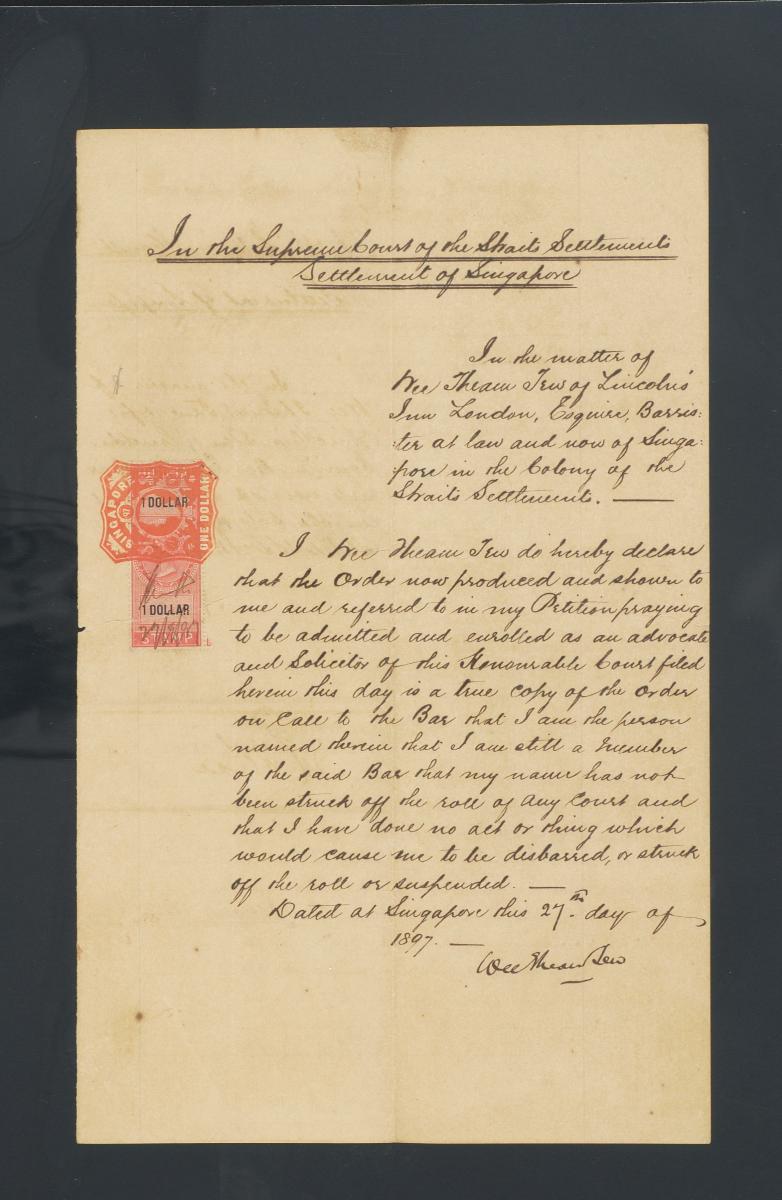 In the Supreme Court of the Straits Settlements
Settlement of Singapore
In the matter of
Wee Theam Tew of Lincoln's
Inn London, Esquire, Barris:
:ter at law and now of Singa:
:pore in the Colony of the
Straits Settlements. —
SINGAPORE
1 DOLLAR
ONE DOLLAR
1 DOLLAR
27/8/97
I Wee Theam Tew do hereby declare
that the Order now produced and shown to
me and referred to in my Petition praying
to be admitted and enrolled as an advocate
and Solicitor of this Honourable Court filed
herein this day is a true copy of the Order
on Call to the Bar that I am the person
named therein that I am still a member
of the said Bar that my name has not
been struck off the roll of any Court and
that I have done no act or thing which
would cause me to be disbarred, or struck
off the roll or suspended. —
Dated at Singapore this 27th day of
1897. —
Wee Theam Tew